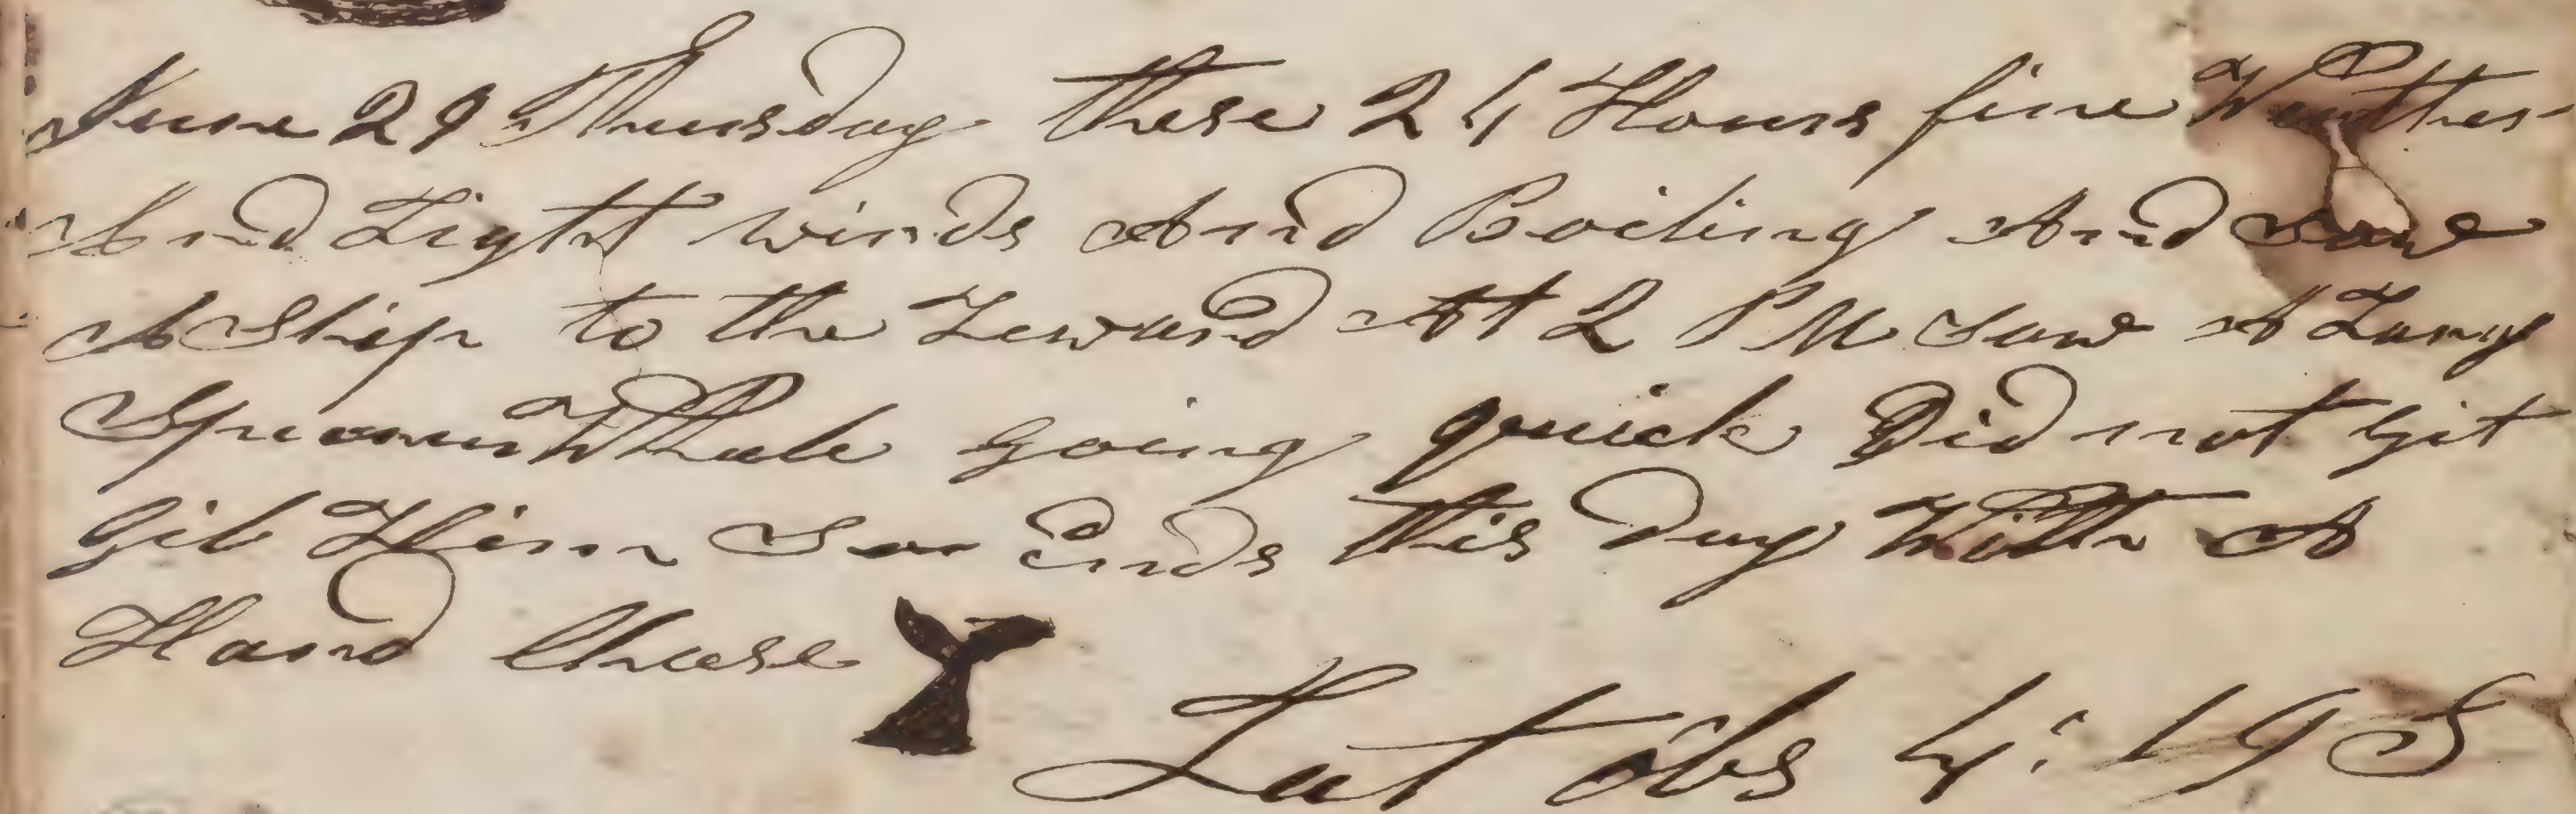 June 29 Thursday these 24 Hours fine Weather
And Light winds And Boiling And Saw
A Ship to the Leward At 2 PM Saw A Larg
Spearm Whale going quick Did not git
Gib Him Soo Ends this Day With A
Hard Chase
Lat obs 4: 19 S